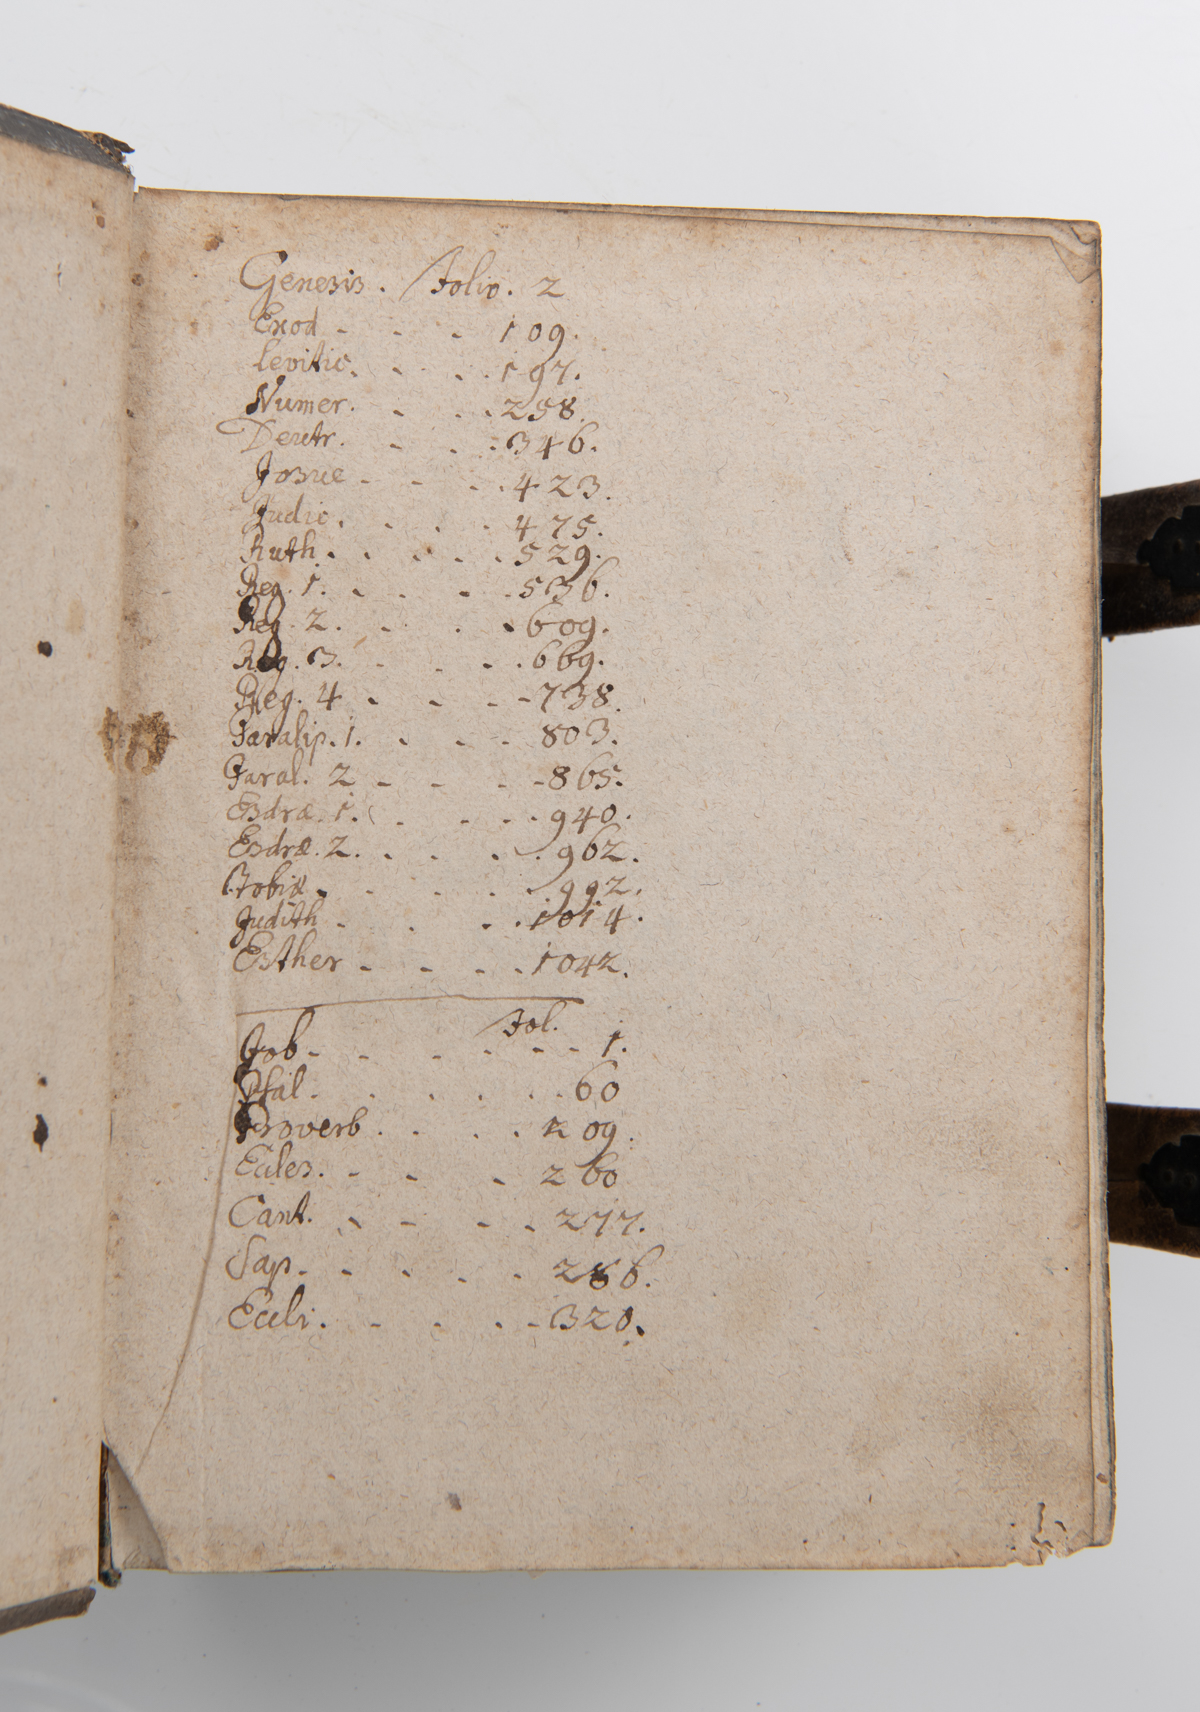 Genesis. Folio. 2
Exod - - - 109.
Levitic. - . . 197.
Numer. - . . 258.
Deutr. - . . 346.
Josue - - - . 423.
Judic. . . . 475.
Ruth . . . . . . 529.
Reg. 1. . - - . 536.
Reg. 2. . . . 609.
Reg. 3. - - - . 669.
Reg. 4 . - - - 738.
Paralip. 1. . - - 803.
Paral. 2 - - - - 865.
Esdræ. 1. . - . . 940.
Esdræ. 2. . . . . 962.
Tobiæ . . . . . 992.
Judith - . . . 1014.
Esther - - - . 1042.
Fol.
Job - - - - - - 1.
Psal. . . . . . 60
Proverb . . . . 209.
Eccles. - - - 260
Cant. . - - - 277.
Sap. - . . . 286.
Eccli. - - . - 320.